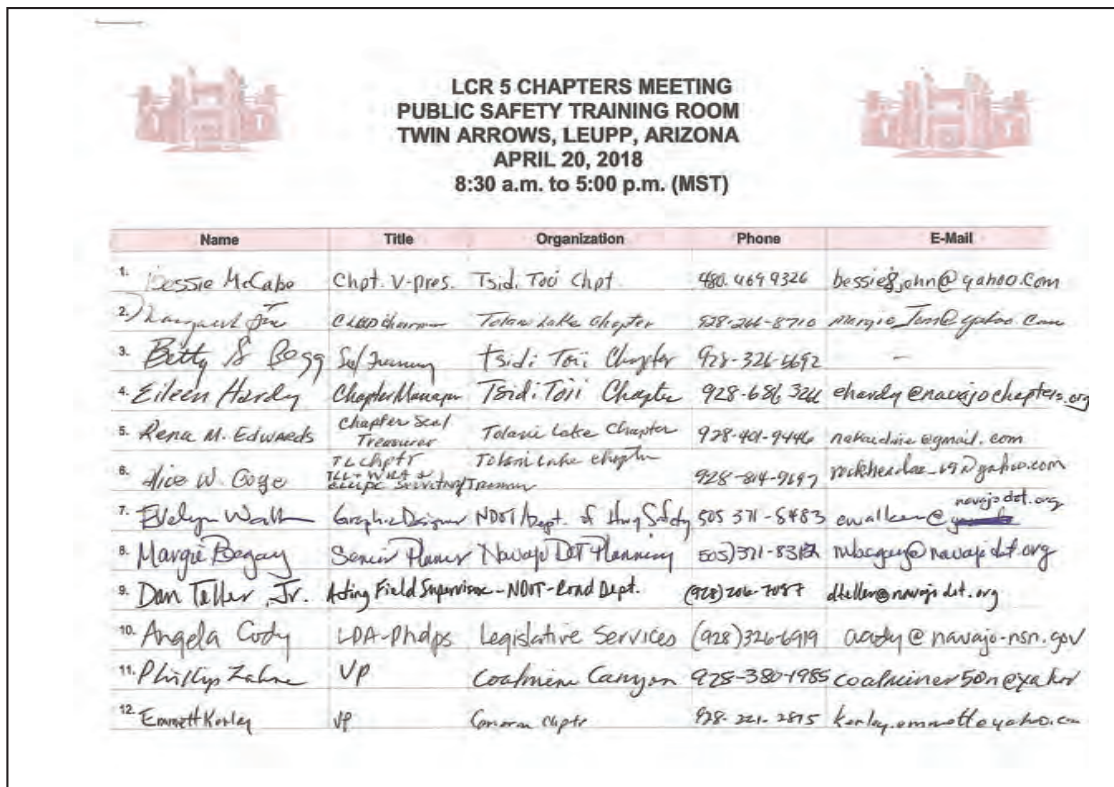 LCR 5 CHAPTERS MEETING
PUBLIC SAFETY TRAINING ROOM
TWIN ARROWS, LEUPP, ARIZONA
APRIL 20, 2018
8:30 a.m. to 5:00 p.m. (MST)
Name Title Organization Phone E-Mail
1. Bessie McCabe Chpt. V-pres. Tsidi Toii Chpt. 480.469 9326 bessie8john@yahoo.com
2. Chairman Tolani Lake Chapter 928-266-8710
3. Betty S Begg Tsidi Toii Chapter 928-326-6692 -
4. Eileen Hardy Chapter Manager Tsidi Toii Chapter 928-686 326 ehardy@navajochapters.org
5. Rena M. Edwards Chapter Treasurer Tolani Lake Chapter 928-401-9446
6. Alice W. TL Chptr Tolani Lake Chapter 928-814-9697
7. Evelyn Graphic Designer NDOT/Dept. of Hwy Safety 505 371-8483 ewalker@ navajodot.org
8. Margie Begay Senior Planner Navajo DOT Planning 505) 371- mbegay@navajodot.org
9. Dan Teller, Jr. Acting Field Supervisor - NDOT-Road Dept. (928) 206-7087 dteller@navajodot.org
10. Angela Cody LDA-Phelps Legislative Services (928)326-6919 acody@navajo-nsn.gov
11. Phillip Zahne VP Coalmine Canyon 928-380-1985
12. Emmett Kerley VP Chptr 928-221-2875